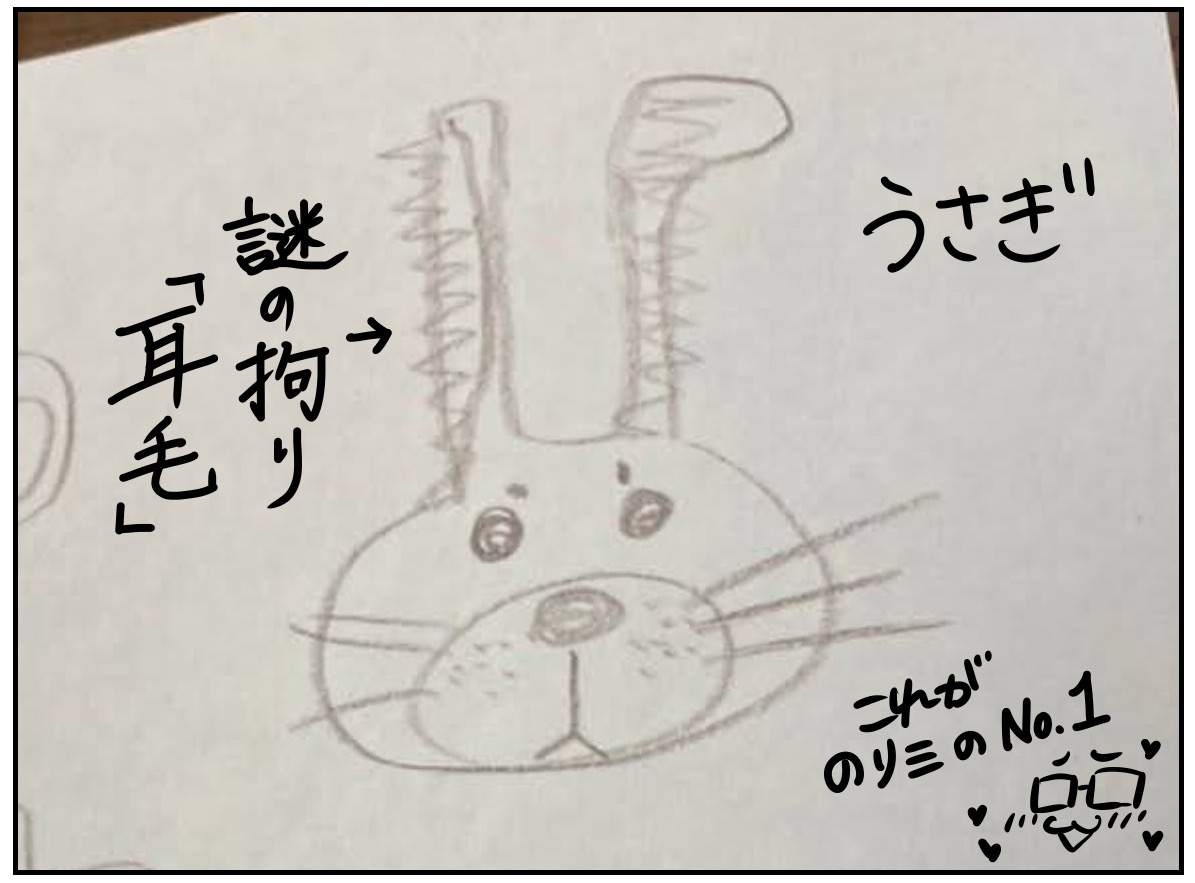 うさぎ
謎の拘り
「耳毛」
→
これが
のりミのNo.1